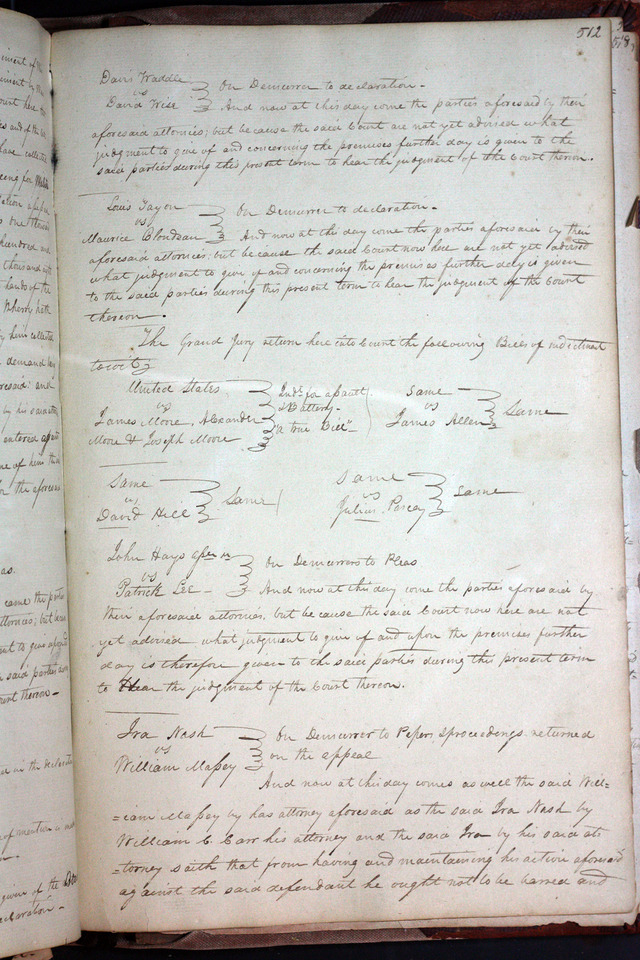 512
518
Davis Waddle
vs
David Wise
On Demurrer to declaration.
And now at this day come the parties aforesaid by their
aforesaid attornies; but because the said Court are not yet advised what
judgment to give of and concerning the premises further day is given to the
said parties during this present term to hear the judgment of the Court thereon.
Louis Tayon
vs
Maurice Blondeau
On Demurrer to declaration.
And now at the day come the parties aforesaid by their
aforesaid attornies. but because the said Court now here are not yet advised
what judgment to give of and concerning the premises further day is given
to the said parties during this present term to hear the judgment of the Court
thereon.
The Grand Jury return here into Court the following Bills of indictment
towit;
United States
vs
James Moore, Alexander
Moore & Joseph Moore
Indt. for assault
& Battery.
"a true Bill"
Same
vs
James Allen
Same
Same
vs
David Hill
Same
Same
vs
Julius
Same
John Hays
vs
Patrick Lee
On Demurrers to Pleas
And now at this day come the parties aforesaid by
their aforesaid attornies, but because the said Court now here are not
yet advised what judgment to give of and upon the premises further
day is therefore given to the said parties during this present term
to Hear the judgment of the Court thereon.
Ira Nash
vs
William Massey
On Demurrer to Papers & proceedings returned
on the appeal
And now at this day comes as well the said Will=
=iam Massey by his attorney aforesaid as the said Ira Nash by
William C. Carr his attorney and the said Ira by his said at=
=torney saith that from having and maintaining his action aforesaid
against the said defendant he ought not to be barred and